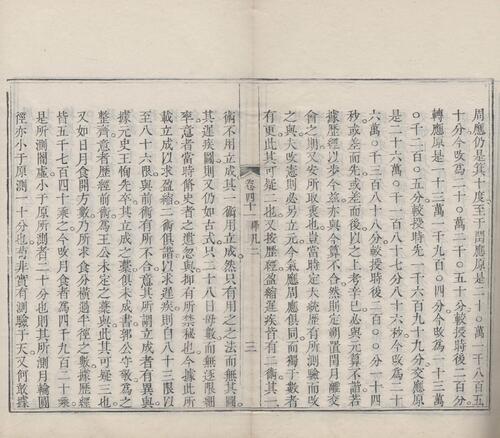 周應仍是箕十度至于閏應原是二十〇萬一千八百五
十分今改為二十〇萬二千〇五十分較授時後二百分
轉應原是一十三萬一千九百〇四分今改為一十三萬
〇千二百〇五分較授時先一千六百九十九分交應原
是二十六萬〇千一百八十七分八十六秒今改為二十
六萬〇千三百八十八分較授時後二百〇〇分一十四
秒或差而先或差而後以之上考辛巳必與元算不諧若
據歷經以步今茲亦與今算不合然則定朔置閏月離交
會之期又安所取衷也豈當時定大統歷有所測驗而改
之與大改憲則必另立元今氣應周應俱同而獨于數者
有更此其可疑二也又按歷經盈縮遲疾皆有二術其一
卷四十 釋凡二 三
術不用立成其一術用立成然只有用之之法而無其圖
其遲疾圖則又仍如古式只二十八日母數而無逐限細
率意者當時脩史者之遺忽與抑有所禁秘也今據此所
載立成以求盈縮二術俱諧以求遲疾則自八十三限以
至八十六限與前術有所不合意其所謂立成者有異與
據元史王恂先卒其立成之藁俱未成書郭公守敬為之
整齊意者歷經前術為王公未定之藁與此其可疑三也
又如日月食開方數乃所求食分橫過半徑之數據歷經
皆五千七百四十乘之今改月食者為四千九百二十乘
是所測闇虛小于原測者二十分也則其所測月輪圓
徑亦小于原測一十分也苟非實有測驗于天又何敢據